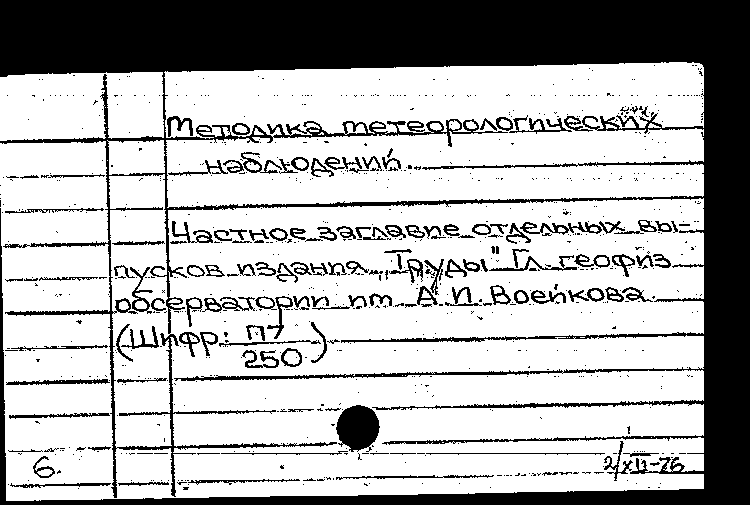 Методика метеорологических
наблюдений.
Частное заглавие отдельных вы-
пусков издания „Труды" Гл. геофиз.
обсерватории им. А. И. Воейкова.
(Шифр: П7
250)
6.
2/XII-76